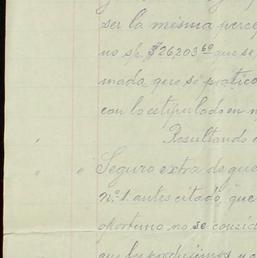 ser la misma perce
no sé $26,203.60 que se
mada que se practico
con lo estipulado en n
Resultando
Seguro extra de que
nº 1. antes citado, que
oportuno no se consid
que los produjimos